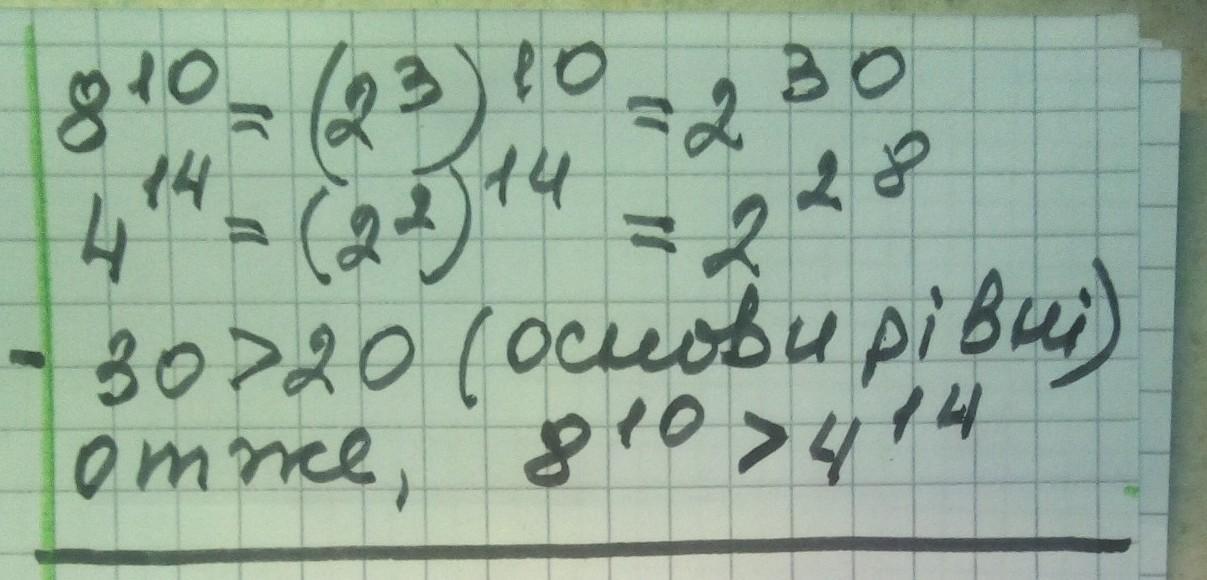 8¹⁰ = (2³)¹⁰ = 2³⁰
4¹⁴ = (2²)¹⁴ = 2²⁸
- 30 > 20 (основи рівні)
отже, 8¹⁰ > 4¹⁴